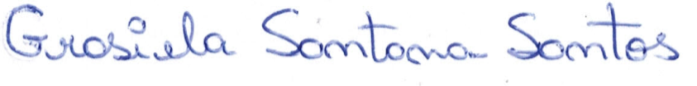 Grasiela Santana Santos